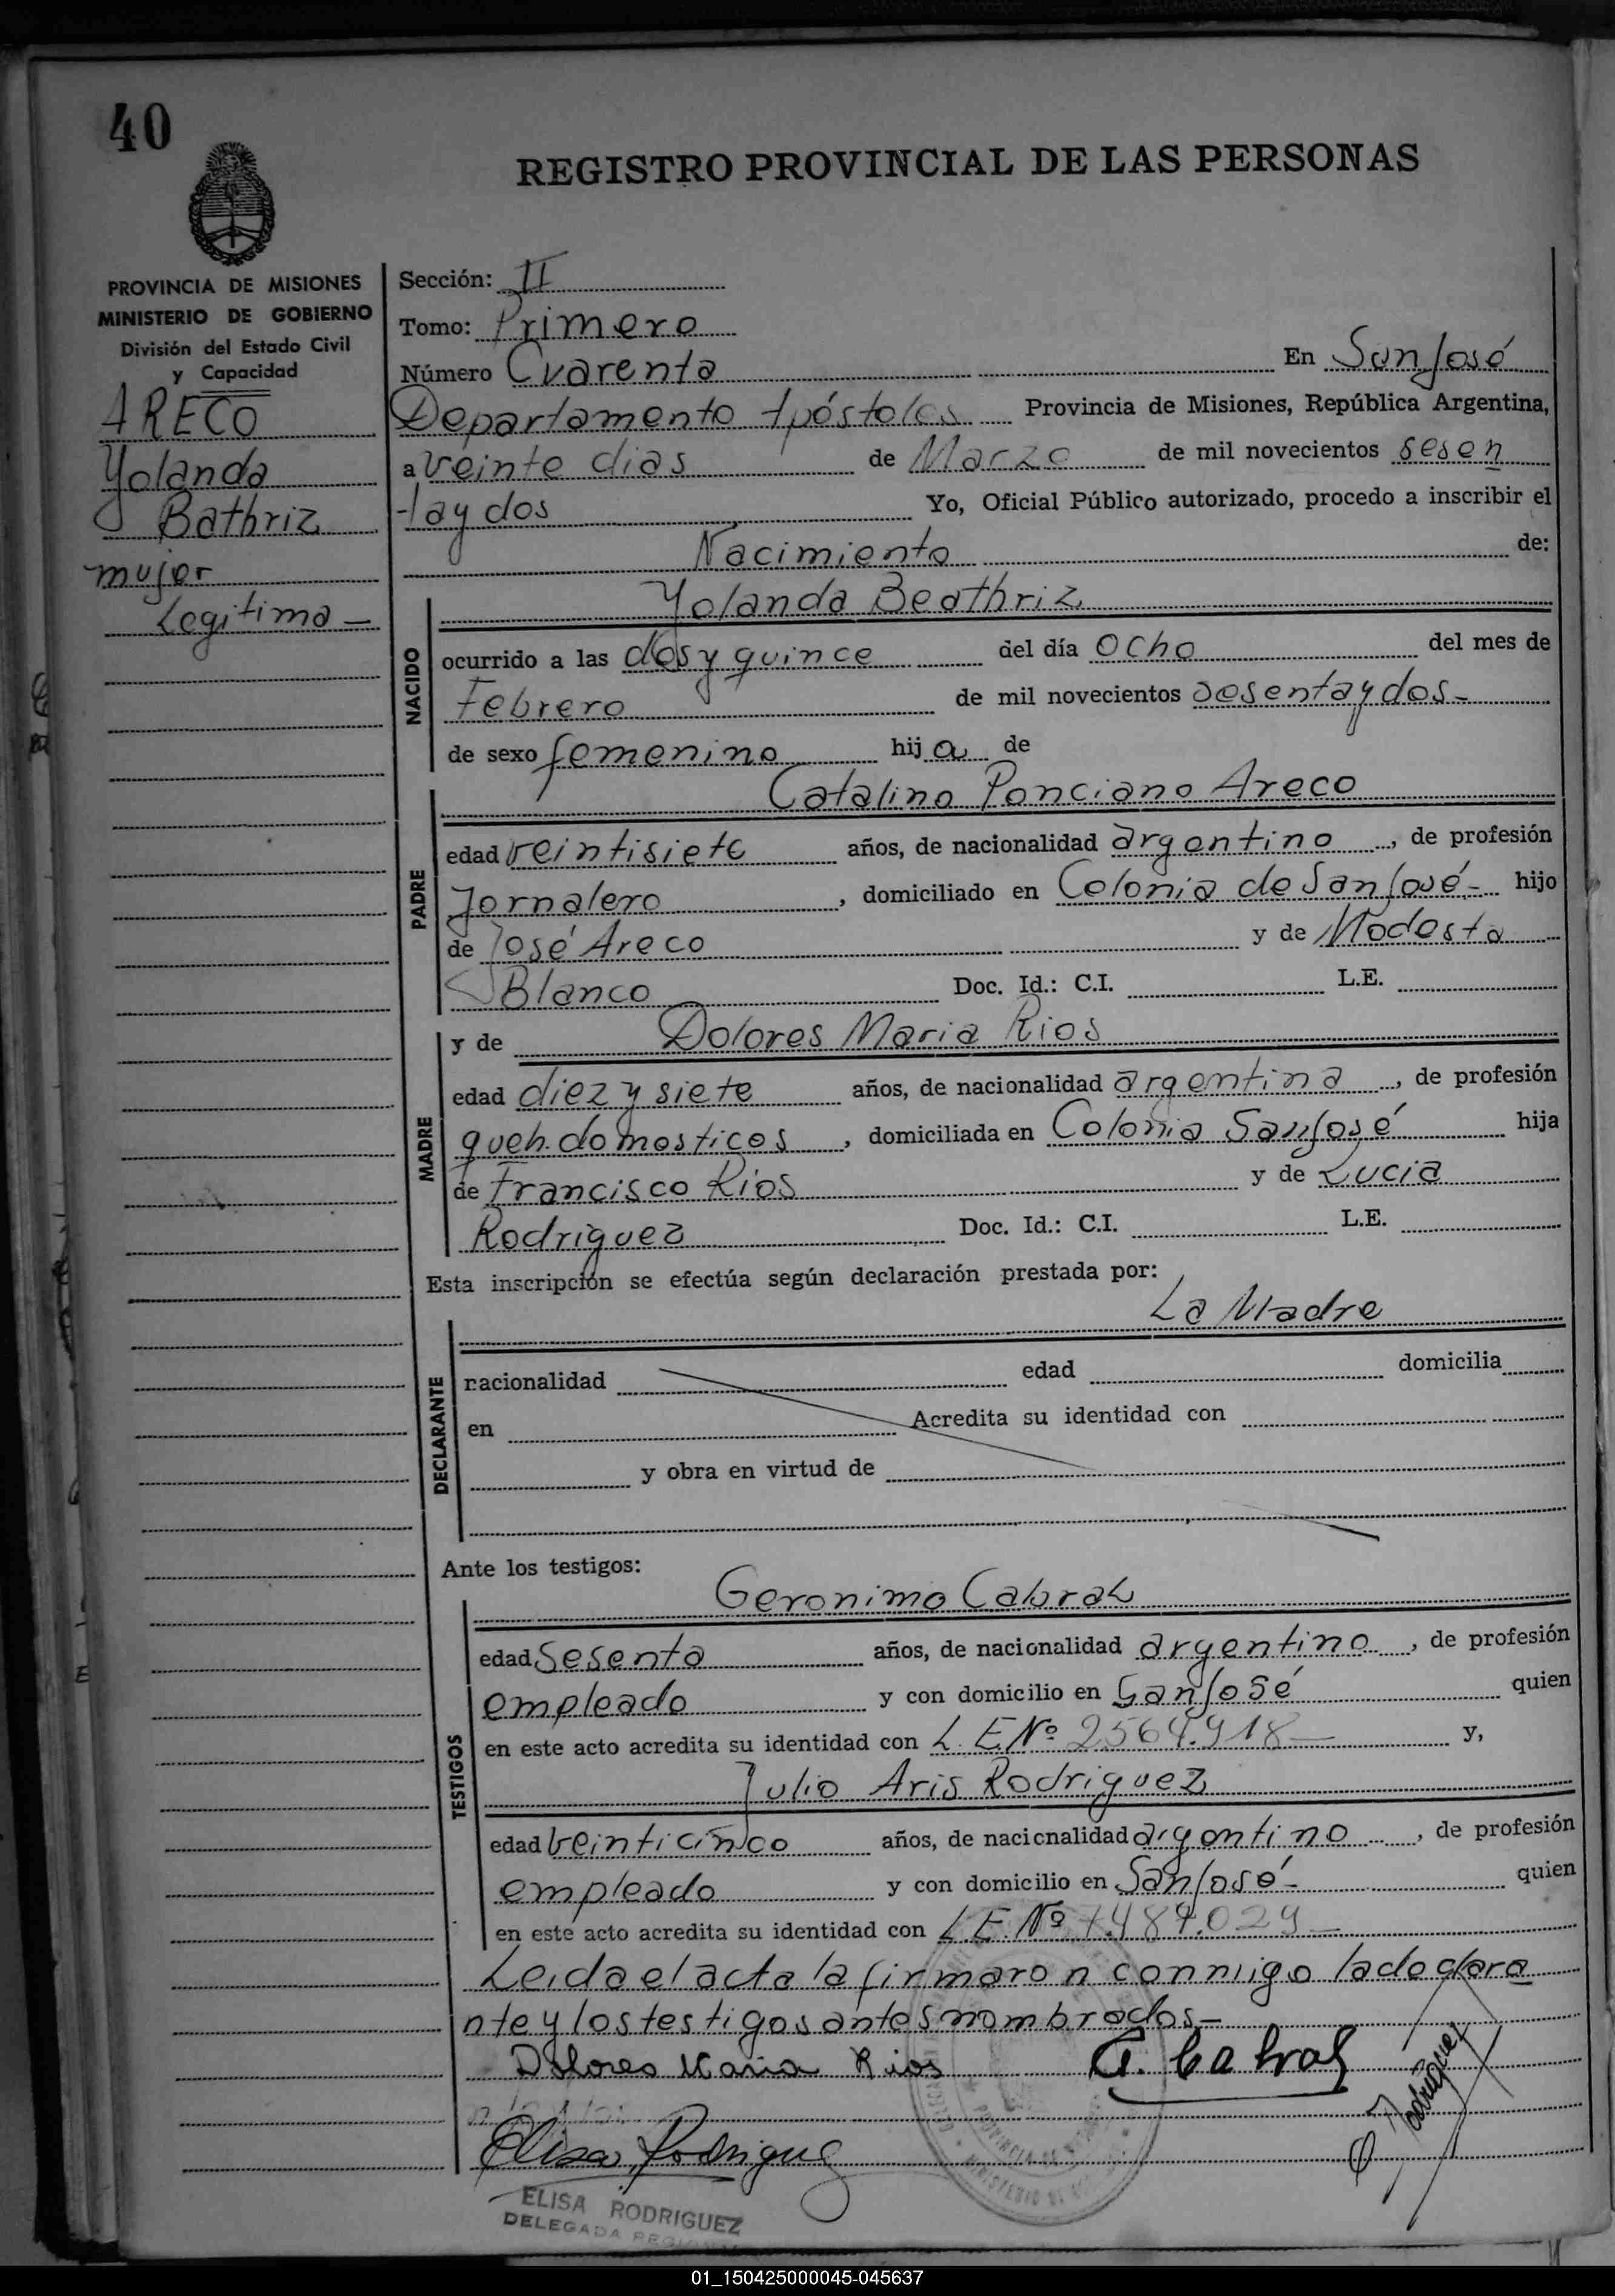 40
REGISTRO PROVINCIAL DE LAS PERSONAS
PROVINCIA DE MISIONES
MINISTERIO DE GOBIERNO
División del Estado Civil
y Capacidad
ARECO
Yolanda
Bathriz
mujer
Legitima —
Sección: II
Tomo: Primero
Número Cuarenta En San José
Departamento Apóstoles Provincia de Misiones, República Argentina,
a veinte dias de Marzo de mil novecientos sesen
ta y dos Yo, Oficial Público autorizado, procedo a inscribir el
Nacimiento de:
NACIDO
Yolanda Beathriz
ocurrido a las dos y quince del día ocho del mes de
Febrero de mil novecientos sesenta y dos-
de sexo femenino hija de
PADRE
Catalino Ponciano Areco
edad veintisiete años, de nacionalidad argentino, de profesión
Jornalero, domiciliado en Colonia de San José- hijo
de José Areco y de Modesta
Blanco Doc. Id.: C.I. L.E.
MADRE
y de Dolores Maria Rios
edad diez y siete años, de nacionalidad argentina, de profesión
queh. domesticos, domiciliada en Colonia San José hija
de Francisco Rios y de Lucia
Rodriguez Doc. Id.: C.I. L.E.
Esta inscripción se efectúa según declaración prestada por:
DECLARANTE
La Madre
nacionalidad edad domicilia
en Acredita su identidad con
y obra en virtud de
Ante los testigos:
TESTIGOS
Geronimo Cabral
edad Sesenta años, de nacionalidad argentino, de profesión
empleado y con domicilio en San José quien
en este acto acredita su identidad con L.E.Nº 2564.918— y,
Julio Aris Rodriguez
edad veinticinco años, de nacionalidad argentino, de profesión
empleado y con domicilio en San José- quien
en este acto acredita su identidad con L.E.Nº 7.484.029—
Leida el acta la firmaron conmigo la declara
nte y los testigos antes nombrados-
Dolores Maria Rios G. Cabral
Rodriguez
Elisa Rodriguez
ELISA RODRIGUEZ
DELEGADA
PROVINCIA DE
MINISTERIO DE
01_150425000045-045637